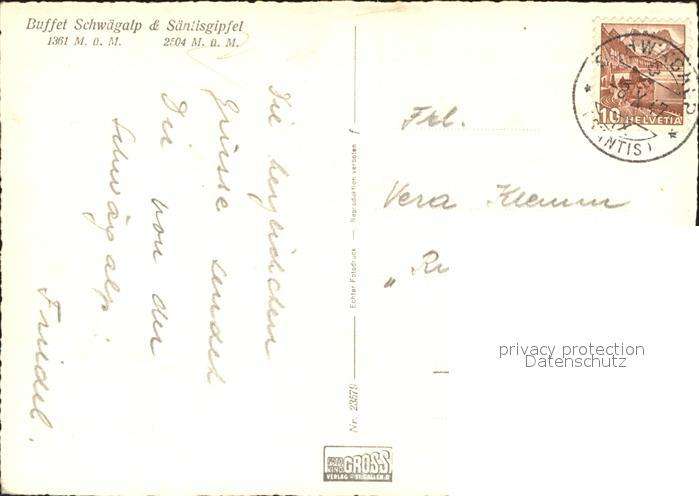 Buffet Schwägalp & Säntisgipfel
1361 M. ü. M. 2504 M. ü. M.
Die herzlichsten
Grüsse sendet
Dir von der
Schwägalp
Friedel.
Echter Fotodruck — Reproduktion verboten
Nr. 23579
FOTO GROSS
VERLAG - ST. GALLEN
Frl.
Vera Klemm
„Ri
10 HELVETIA
SCHWÄGALP
(SÄNTIS)
privacy protection
Datenschutz